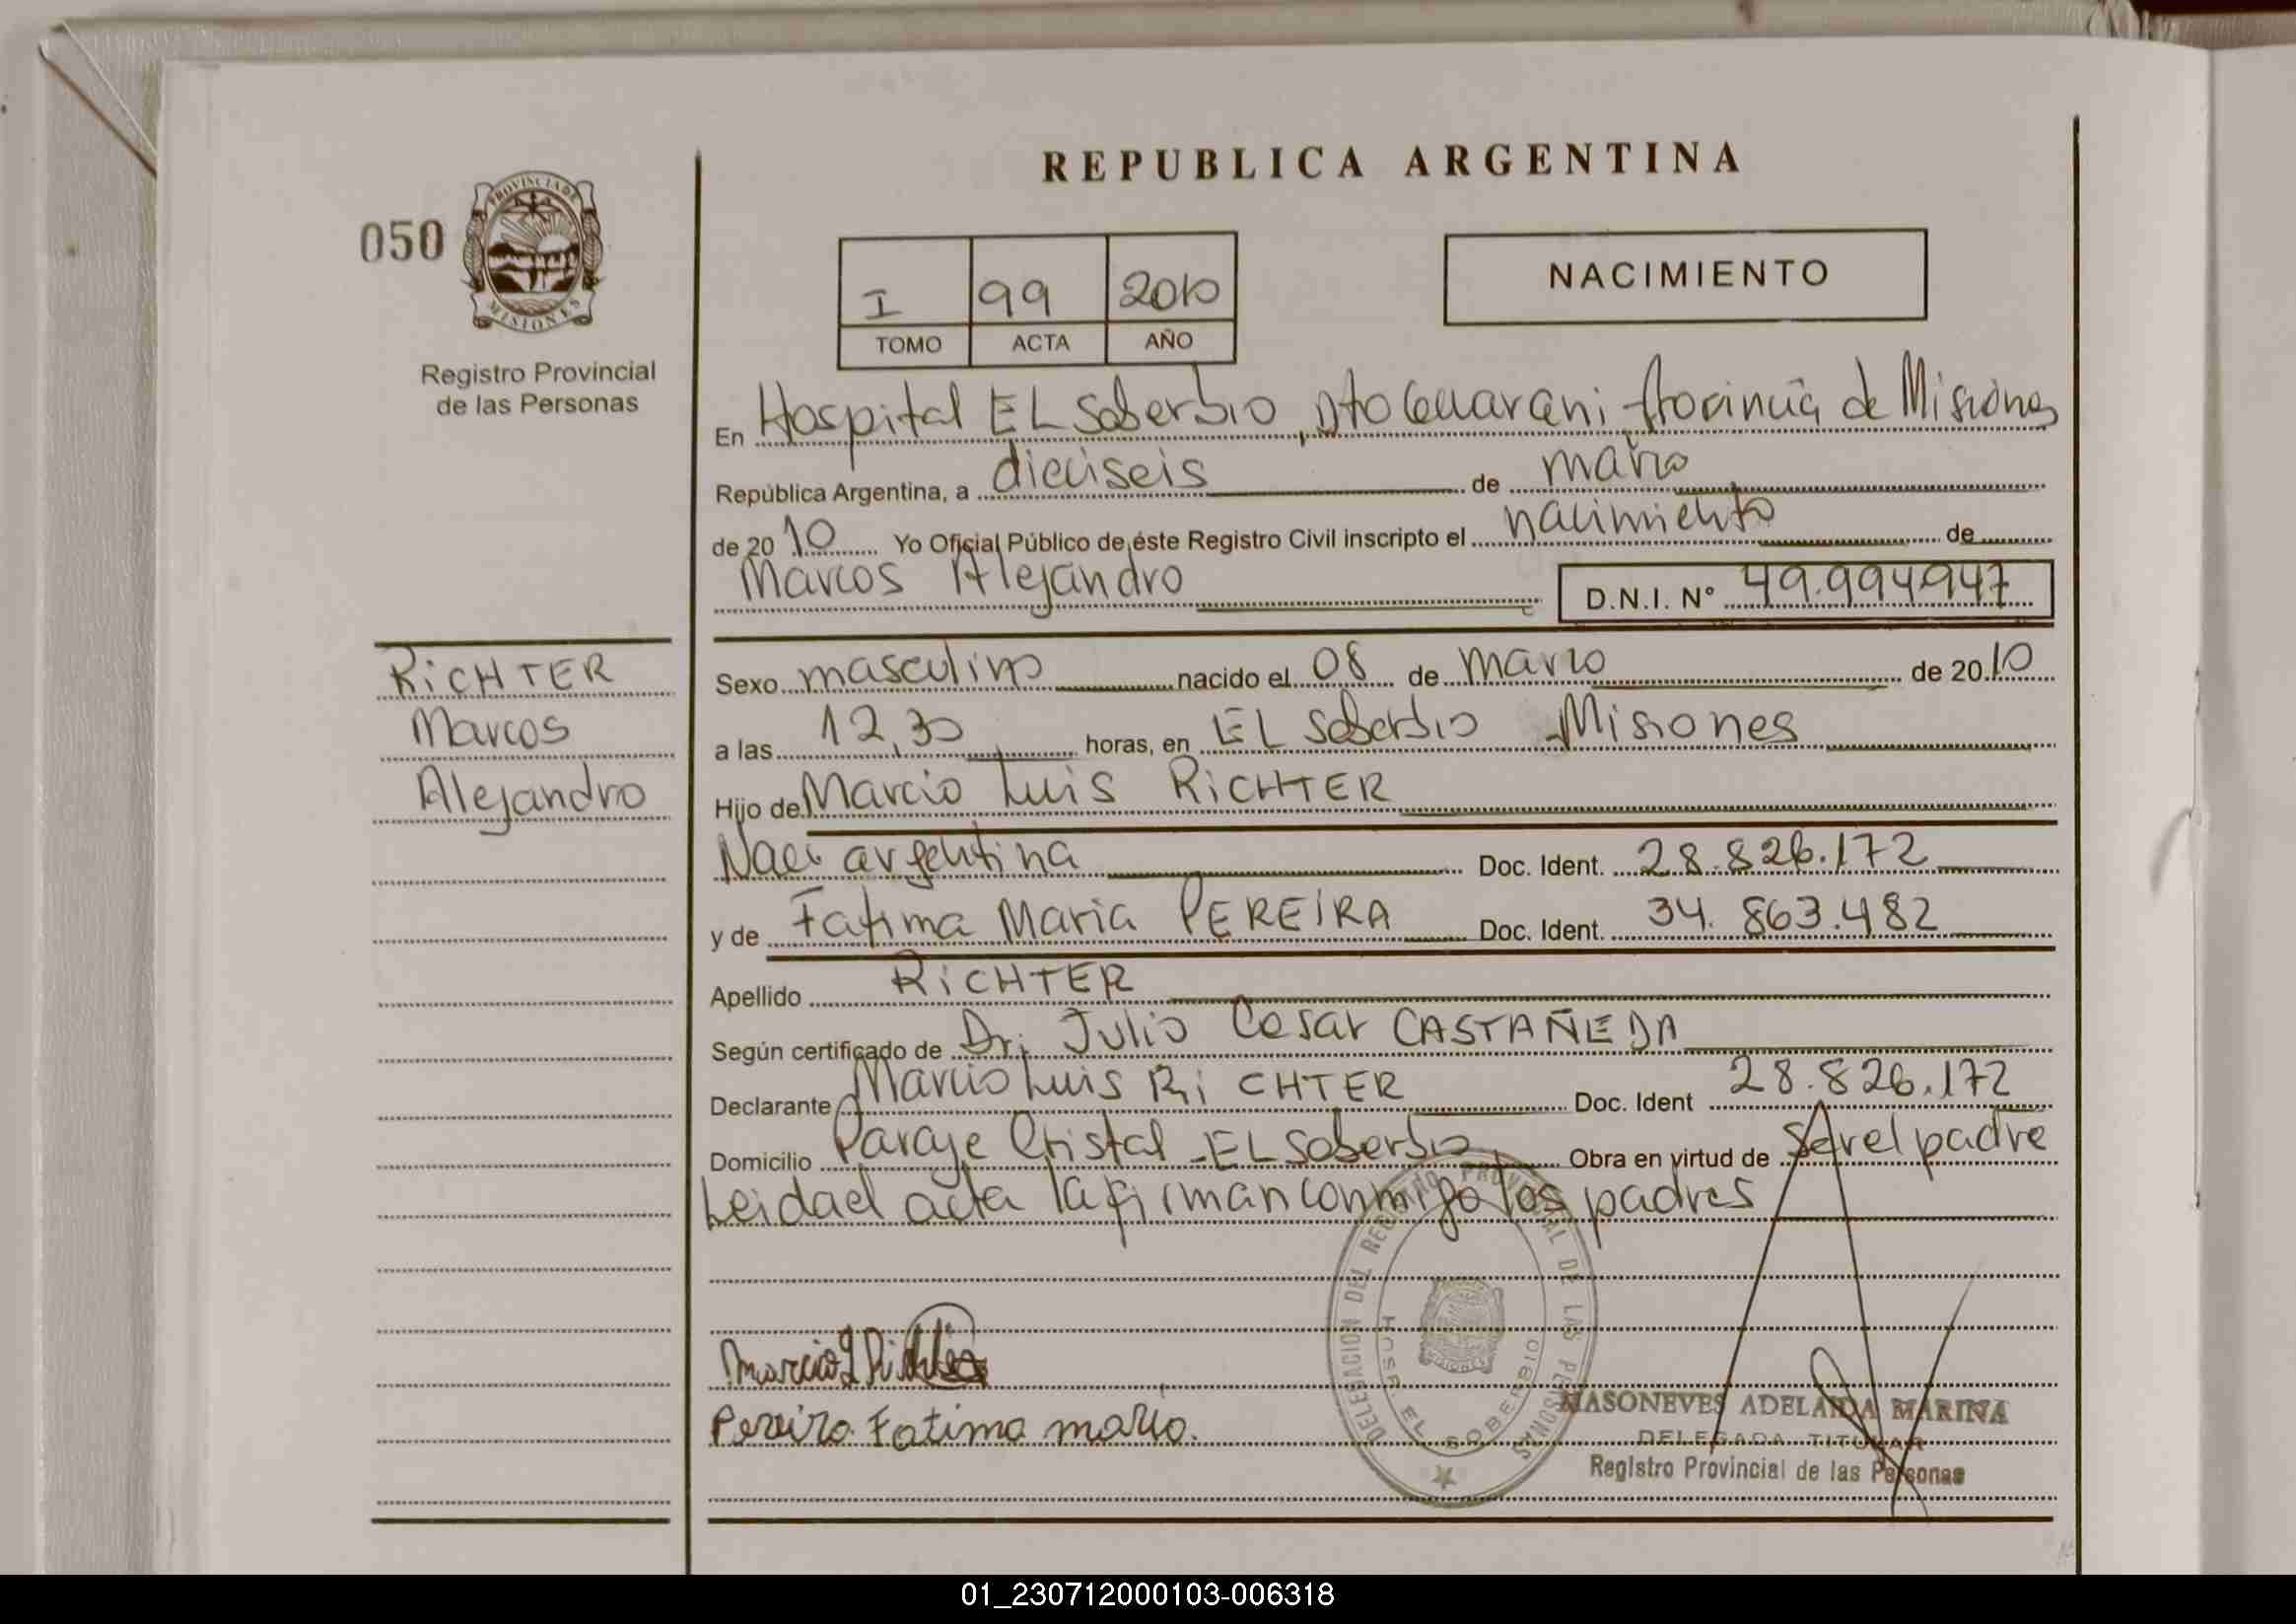 REPUBLICA ARGENTINA
050
PROVINCIA DE
MISIONES
Registro Provincial
de las Personas
I 99 2010
TOMO ACTA AÑO
NACIMIENTO
En Hospital EL Soberbio, Dto Guarani Provincia de Misiones
República Argentina, a dieciseis de marzo
de 2010 Yo Oficial Público de éste Registro Civil inscripto el nacimiento de
Marcos Alejandro D.N.I. N° 49.994947
RiCHTER
Marcos
Alejandro
Sexo masculino nacido el 08 de Marzo de 2010
a las 12,30 horas, en EL Soberbio Misiones
Hijo de Marcio Luis RiCHTER
Nac. argentina Doc. Ident. 28.826.172
y de Fatima Maria PEREIRA Doc. Ident. 34.863.482
Apellido RiCHTER
Según certificado de Dr. Julio Cesar CASTAÑEDA
Declarante Marcio Luis RiCHTER Doc. Ident 28.826.172
Domicilio Paraje Cristal - EL Soberbio Obra en virtud de ser el padre
Leida el acta la firman conmigo los padres
Marcio L Richter
Pereira Fatima maria.
DELEGACION DEL REGISTRO PROVINCIAL DE LAS PERSONAS
EL SOBERBIO
MISIONES
MASONEVES ADELAIDA MARINA
DELEGADA TITULAR
Registro Provincial de las Personas
01_230712000103-006318